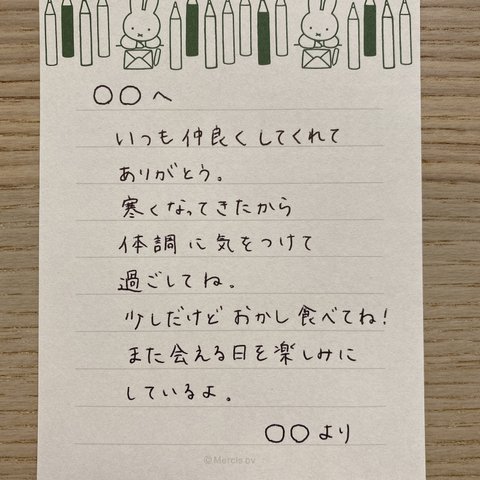 ○○へ
いつも仲良くしてくれて
ありがとう。
寒くなってきたから
体調に気をつけて
過ごしてね。
少しだけど おかし食べてね!
また会える日を楽しみに
しているよ。
○○より
©Mercis bv